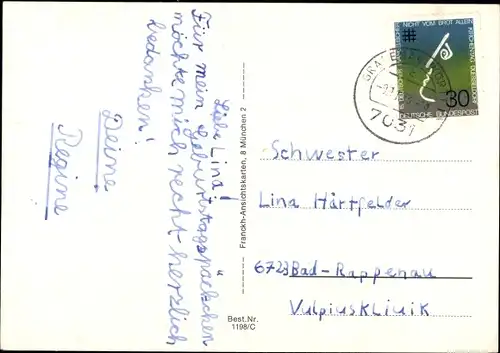 Liebe Lina!
Für mein Geburtstagspäckchen
möchte mich recht herzlich
bedanken!
Deine
Regine
Franckh-Ansichtskarten, 8 München 2
Best.Nr.
1198/C
NICHT VOM BROT ALLEIN
30
DEUTSCHE BUNDESPOST
7031
Schwester
Lina Härtfelder
6723 Bad-Rappenau
Vulpiusklinik